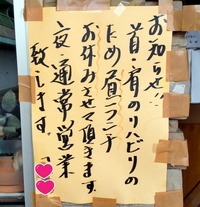 お知らせ!!
首・肩のリハビリの
ため昼ランチ
お休みさせて頂きます。
夜通常営業
致します。